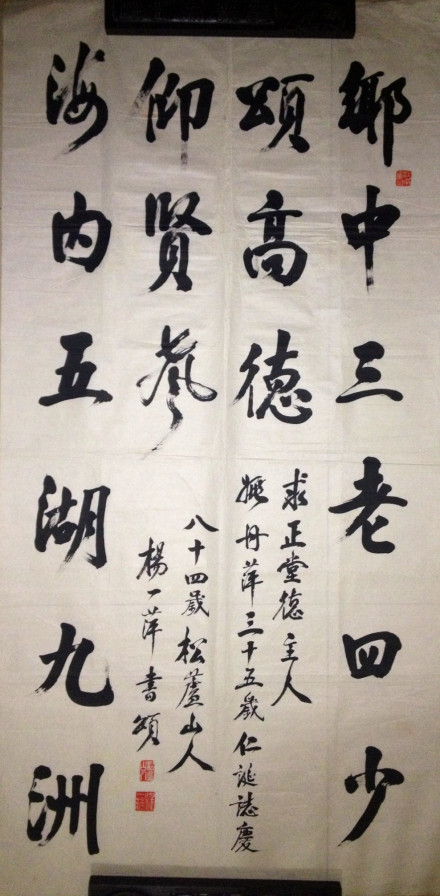 鄉中三老四少
頌高德
海内五湖九洲
仰賢風
求正堂德主人
姚丹萍三十五歲仁誕誌慶
八十四歲松蘆山人
楊一萍書頌